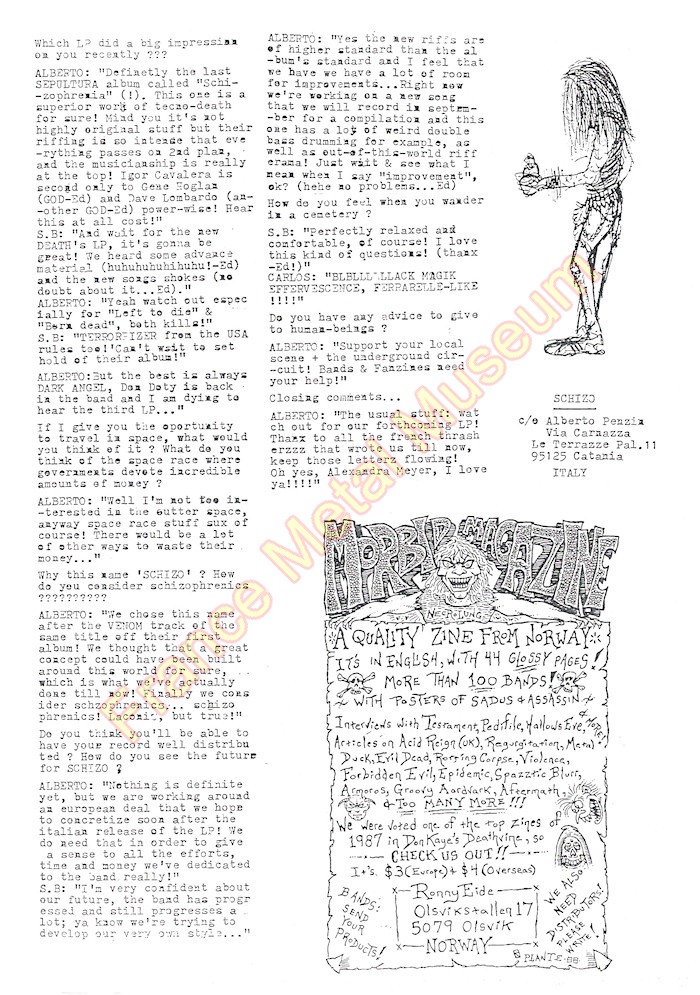 Which LP did a big impression
on you recently ???
ALBERTO: "Definetly the last
SEPULTURA album called "Schi-
-zophrenia" (!). This one is a
superior work of tecno-death
for sure! Mind you it's not
highly original stuff but their
riffing is so intense that eve
-rything passes on 2nd plan,
and the musicianship is really
at the top! Igor Cavalera is
second only to Gene Hoglan
(GOD-Ed) and Dave Lombardo (an-
-other GOD-Ed) power-wise! Hear
this at all cost!"
S.B: "And wait for the new
DEATH's LP, it's gonna be
great! We heard some advance
material (huhuhuhuhihuhu!-Ed)
and the new songs shokes (no
doubt about it...Ed)."
ALBERTO: "Yeah watch out espec
ially for "Left to die" &
"Born dead", both kills!"
S.B: "TERRORFIZER from the USA
rules too!'Can't wait to set
hold of their album!"
ALBERTO:But the best is always
DARK ANGEL, Don Doty is back
in the band and I am dying to
hear the third LP..."
If I give you the oportunity
to travel in space, what would
you think of it ? What do you
think of the space race where
governments devote incredible
amounts of money ?
ALBERTO: "Well I'm not too in-
-terested in the outter space,
anyway space race stuff sux of
course! There would be a lot
of other ways to waste their
money..."
Why this name 'SCHIZO' ? How
do you consider schizophrenics
??????????
ALBERTO: "We chose this name
after the VENOM track of the
same title off their first
album! We thought that a great
concept could have been built
around this world for sure,
which is what we've actually
done till now! Finally we cons
ider schzophrenics... schizo
phrenics! Laconic, but true!"
Do you think you'll be able to
have your record well distribu
ted ? How do you see the future
for SCHIZO ?
ALBERTO: "Nothing is definite
yet, but we are working around
an european deal that we hope
to concretize soon after the
italian release of the LP! We
do need that in order to give
a sense to all the efforts,
time and money we've dedicated
to the band really!"
S.B: "I'm very confident about
our future, the band has progr
essed and still progresses a
lot; ya know we're trying to
develop our very own style..."
ALBERTO: "Yes the new riffs are
of higher standard than the al
-bum's standard and I feel that
we have we have a lot of room
for improvements...Right now
we're working on a new song
that we will record in septem-
-ber for a compilation and this
one has a lot of weird double
bass drumming for example, as
well as out-of-this-world riff
erama! Just wait & see what I
mean when I say "improvement",
ok? (hehe no problems...Ed)
How do you feel when you wander
in a cemetery ?
S.B: "Perfectly relaxed and
comfortable, of course! I love
this kind of questions! (thanx
-Ed!)"
CARLOS: "BLBLLLLLLACK MAGIK
EFFERVESCENCE, FERRARELLE-LIKE
!!!!"
Do you have any advice to give
to human-beings ?
ALBERTO: "Support your local
scene + the underground cir-
-cuit! Bands & Fanzines need
your help!"
Closing comments...
ALBERTO: "The usual stuff: wat
ch out for our forthcoming LP!
Thanx to all the french thrash
erzzz that wrote us till now,
keep those letterz flowing!
Oh yes, Alexandra Meyer, I love
ya!!!!"
SCHIZO
c/o Alberto Penzin
Via Carnazza
Le Terrazze Pal.11
95125 Catania
ITALY
MORBID MAGAZINE
NECROLUNG
A QUALITY ZINE FROM NORWAY
IT'S IN ENGLISH, WITH 44 GLOSSY PAGES!
MORE THAN 100 BANDS!
WITH POSTERS OF SADUS & ASSASSIN
Interviews with Testament, Pedifile, Hallows Eve, & More!
Articles on Acid Reign (UK), Regurgitation, Metal
Duck, Evil Dead, Rotting Corpse, Violence,
Forbidden Evil, Epidemic, Spazztic Blurr,
Armoros, Groovy Aardvark, Aftermath,
& Too MANY MORE!!!
We were voted one of the top zines of
1987 in Don Kaye's Deathvine, so
CHECK US OUT!!
It's $3 (Europe) + $4 (Overseas)
BANDS:
SEND
YOUR
PRODUCTS!
Ronny Eide
Olsvikstallen 17
5079 Olsvik
NORWAY
WE ALSO
NEED
DISTRIBUTORS!
PLEASE
WRITE!
PLANTE-88
France Metal Museum